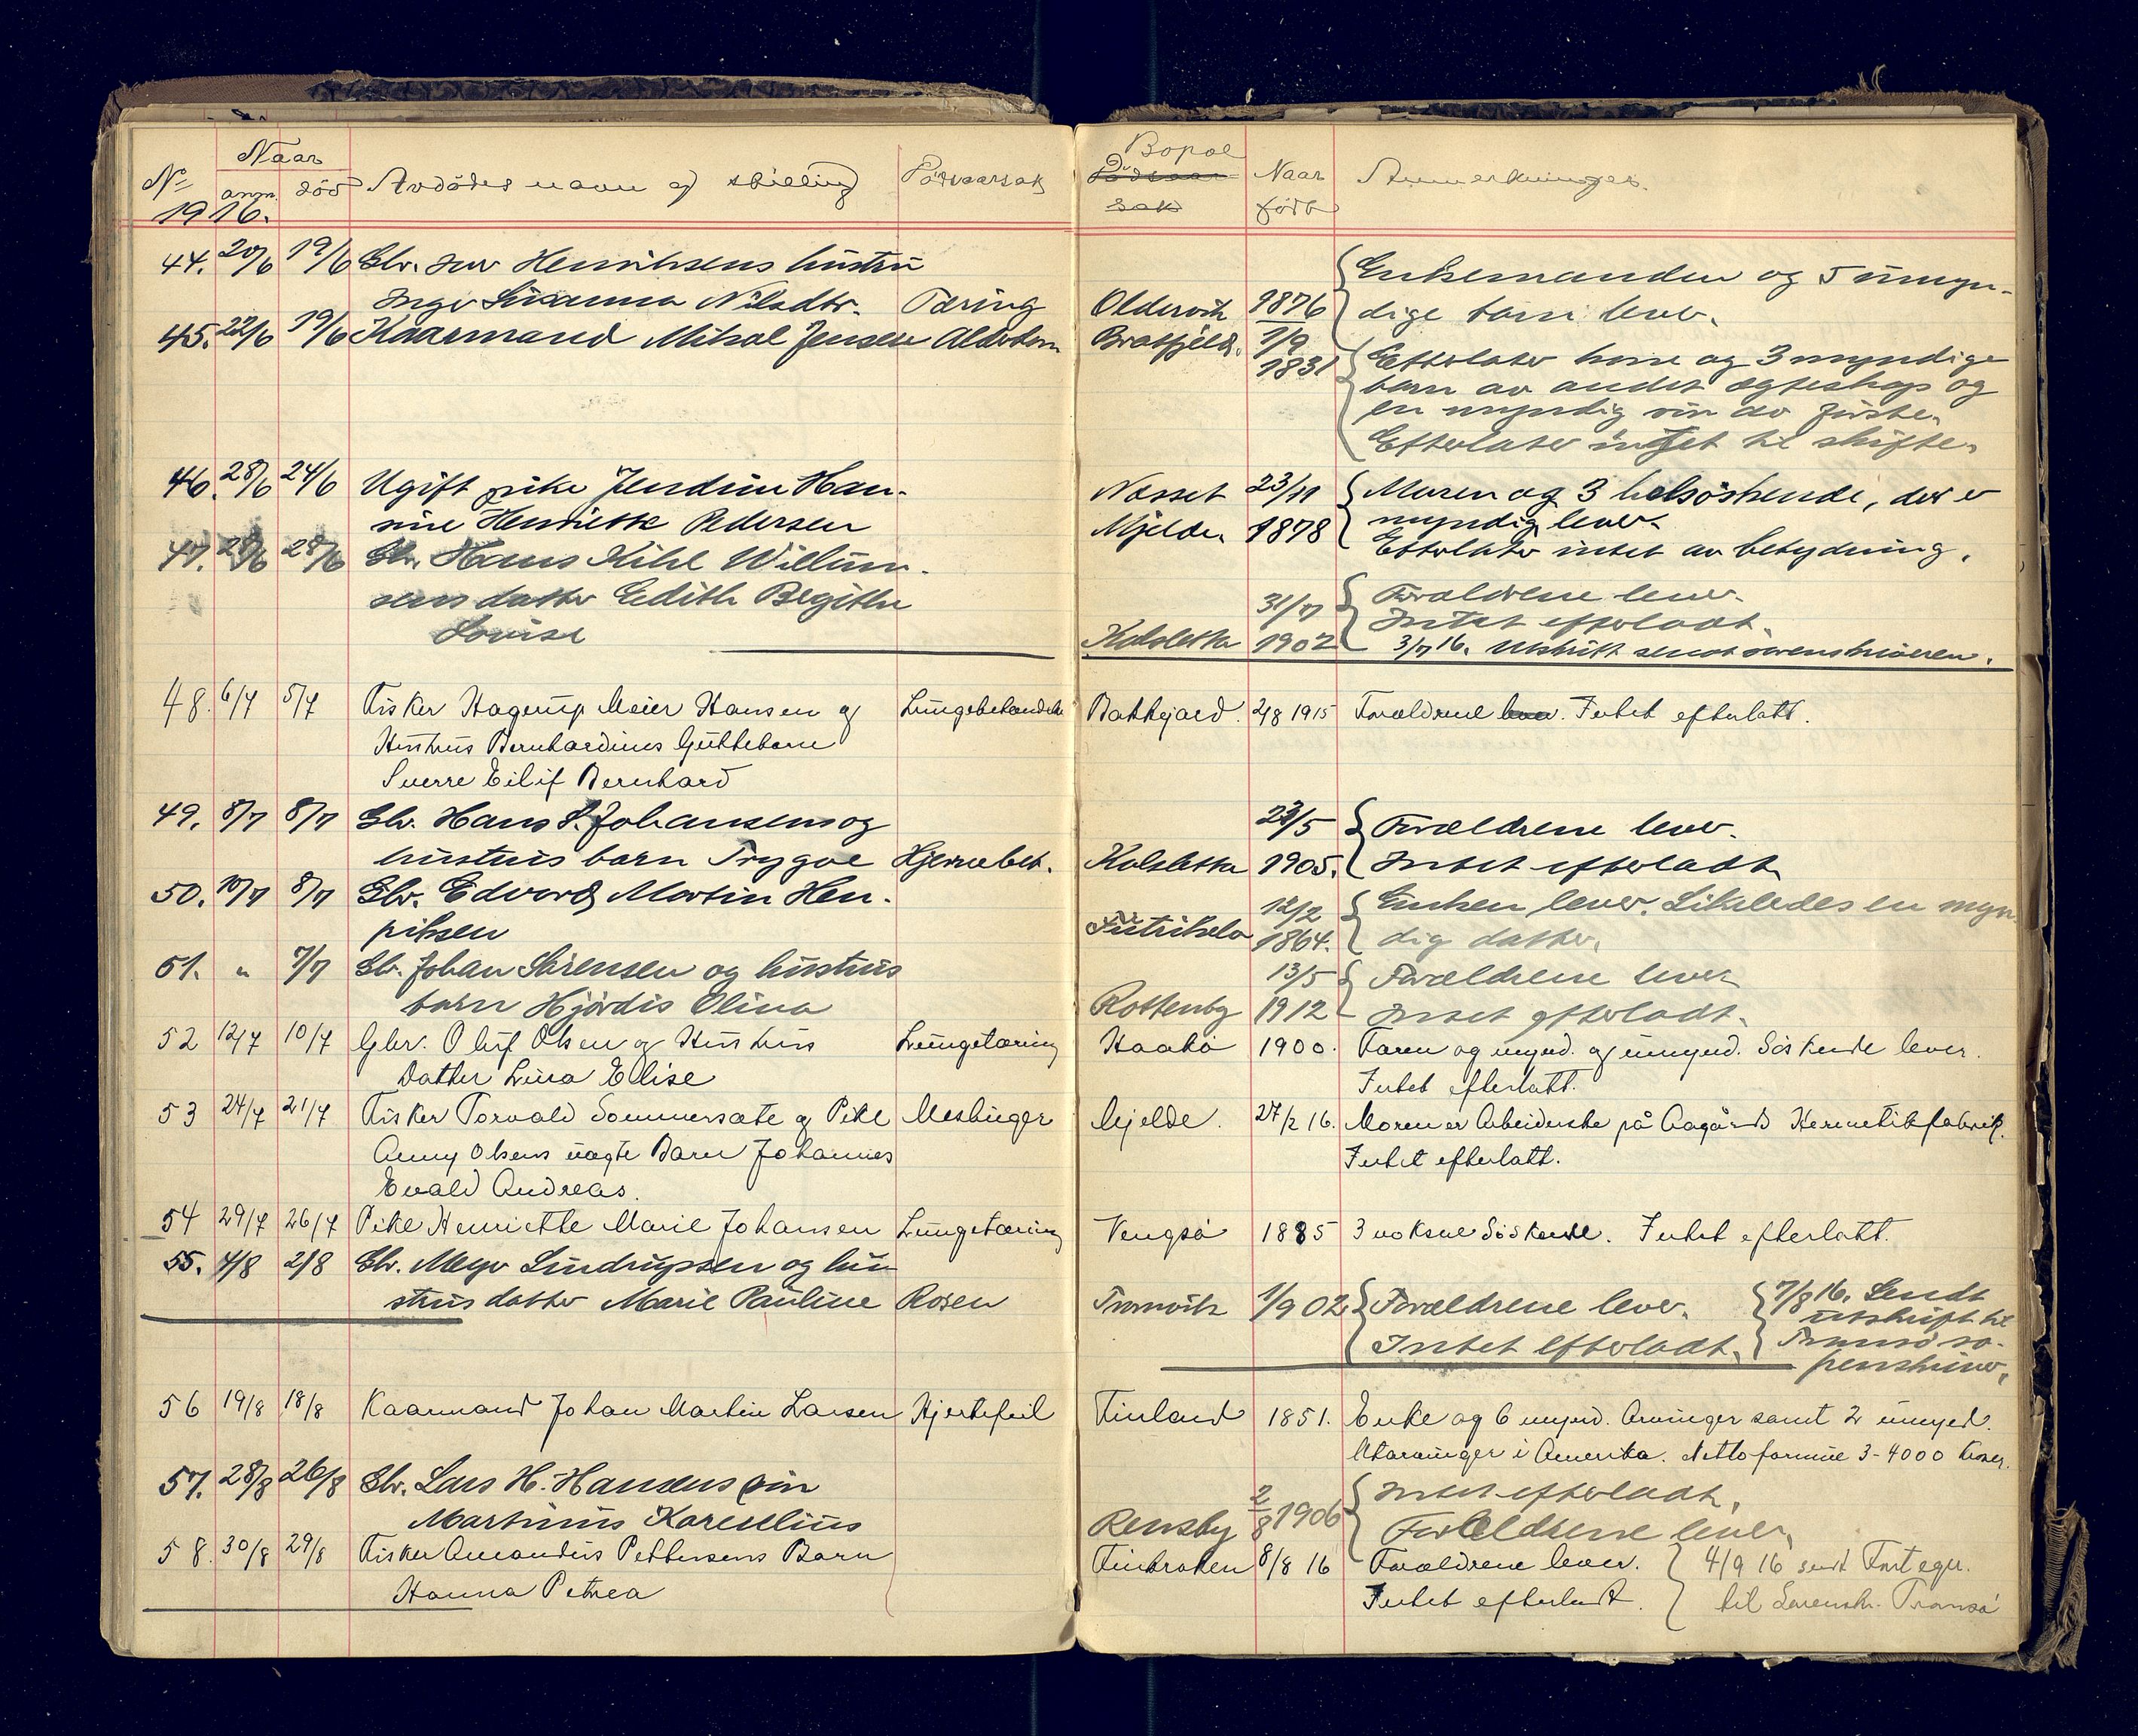 No
Naar
anm.
död
Avdödes navn og stilling
Dödsaarsak
1916.
44. 20/6 19/6 Gbr. Henriksens hustru
Inga Susanna Nilsdtr. Tæring
45. 22/6 19/6 Kaarmand Mikal Jensen Alderdom
46. 28/6 24/6 Ugift pike Jendine Han-
sine Henriette Pedersen
47. 28/6 28/6 Gbr. Hans Kihl Willum-
sens datter Edith Bergithe
Lovise
48. 6/7 5/7 Fisker Hagerup Meier Hansen og Lungebetændelse
Hustrus Bernhardines Guttebarn
Sverre Eilif Bernhard
49. 8/7 8/7 Gbr. Hans S. Johansens og
hustrus barn Trygve Hjernebet.
50. 10/7 8/7 Gbr. Edvard Martin Hen-
riksen
51. " 7/7 Gbr. Johan Sörensen og hustrus
barn Hjördis Olina
52 12/7 10/7 Gbr. Oluf Olsen og Hustrus Lungetæring
Datter Lina Elise
53 24/7 21/7 Fisker Torvald Sommersæte og Pike Meslinger
Anny Olsens uægte Barn Johannes
Evald Andreas.
54 29/7 26/7 Pike Henriette Marie Johansen Lungetæring
55. 4/8 2/8 Gbr. Meyer Lindrupsen og hu-
strus datter Marie Pauline Rosen
56 19/8 18/8 Kaarmand Johan Martin Larsen Hjertefeil
57. 28/8 26/8 Gbr. Lars H. Hansens sön
Martinius Kornelius
58. 30/8 29/8 Fisker Amandus Pettersens Barn
Hanna Petrea
Bopæl
Dödsaar
sak
Naar
född
Anmerkninger.
Enkemanden og 5 umyn-
Oldervik 1876 dige barn lever.
Bratfjeld. 1/9
1831 Efterlater kone og 3 myndige
barn av andet ægteskap og
en myndig sön av förste.
Efterlater intet til skifte.
Næsset 23/11 Moren og 3 helsöskende, der er
Mjelde. 1878 myndig lever.
Efterlater intet av betydning.
Forældrene lever.
31/7 Intet efterladt.
Kalsletta 1902 3/7 16. Utskrift sendt sorenskriveren.
Bakkejord. 2/8 1915 Forældrene lever. Intet efterlatt.
23/5 Forældrene lever.
Kalsletta 1905. Intet efterladt
12/2 Enken lever. Likeledes en myn-
Futrikelv 1864. dig datter.
13/5 Forældrene lever
Rottenby 1912 Intet efterladt.
Haakö 1900. Faren og mynd. og umynd. Söskende lever.
Intet efterlatt.
Mjelde. 27/2 16. Moren er Arbeiderske på Aagårds Hermetikfabrik.
Intet efterlatt.
Vengsö 1885 3 voksne Söskende. Intet efterlatt.
Tromvik 1/9 02 Forældrene lever. 7/8 16. Sendt
utskrift til
Intet efterladt. Tromsö so-
renskriver.
Finland 1851. Enke og 6 mynd. Arvinger samt 2 umynd.
Utarvinger i Amerika. Nettoformue 3-4000 kroner.
Intet efterladt.
Rensby 2/8 1906 Forældrene lever.
Finkroken 8/8 16 Forældrene lever. 4/9 16 sendt Fortegn.
Intet efterladt. til Sorenskr. Tromsö